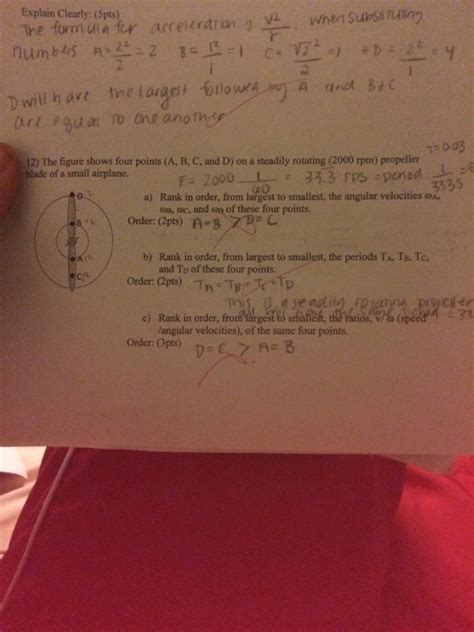 Explain Clearly: (5pts)
The formula for acceleration is V²/r. when substituting
numbers A = 2²/2 = 2 B = 1²/1 = 1 C = √2²/2 = 1 + D = 2²/1 = 4
D will have the largest followed by A and B + C
are equal to one another
T=0.03
12) The figure shows four points (A, B, C, and D) on a steadily rotating (2000 rpm) propeller
blade of a small airplane.
F = 2000 1/60 = 33.3 rps = period 1/33.35
a) Rank in order, from largest to smallest, the angular velocities ωA,
ωB, ωC, and ωD of these four points.
Order: (2pts) A=B > D=C
b) Rank in order, from largest to smallest, the periods TA, TB, TC,
and TD of these four points.
Order: (2pts) TA = TB = TC = TD
This is a steadily rotating propeller
all will have the same period = 33
c) Rank in order, from largest to smallest, the ratios, v/ ω (speed
/angular velocities), of the same four points.
Order: (3pts) D=C > A=B
D
B
A
C